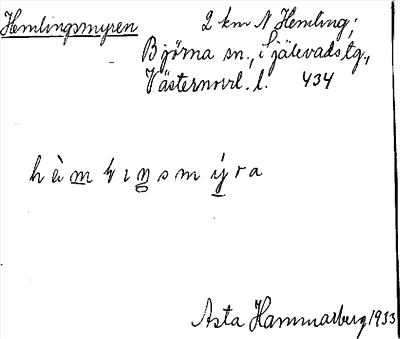 Hemlingsmyren 2 km N Hemling;
Björna sn., Själevads tg.,
Västernorrl. l. 434
Asta Hammarberg 1933